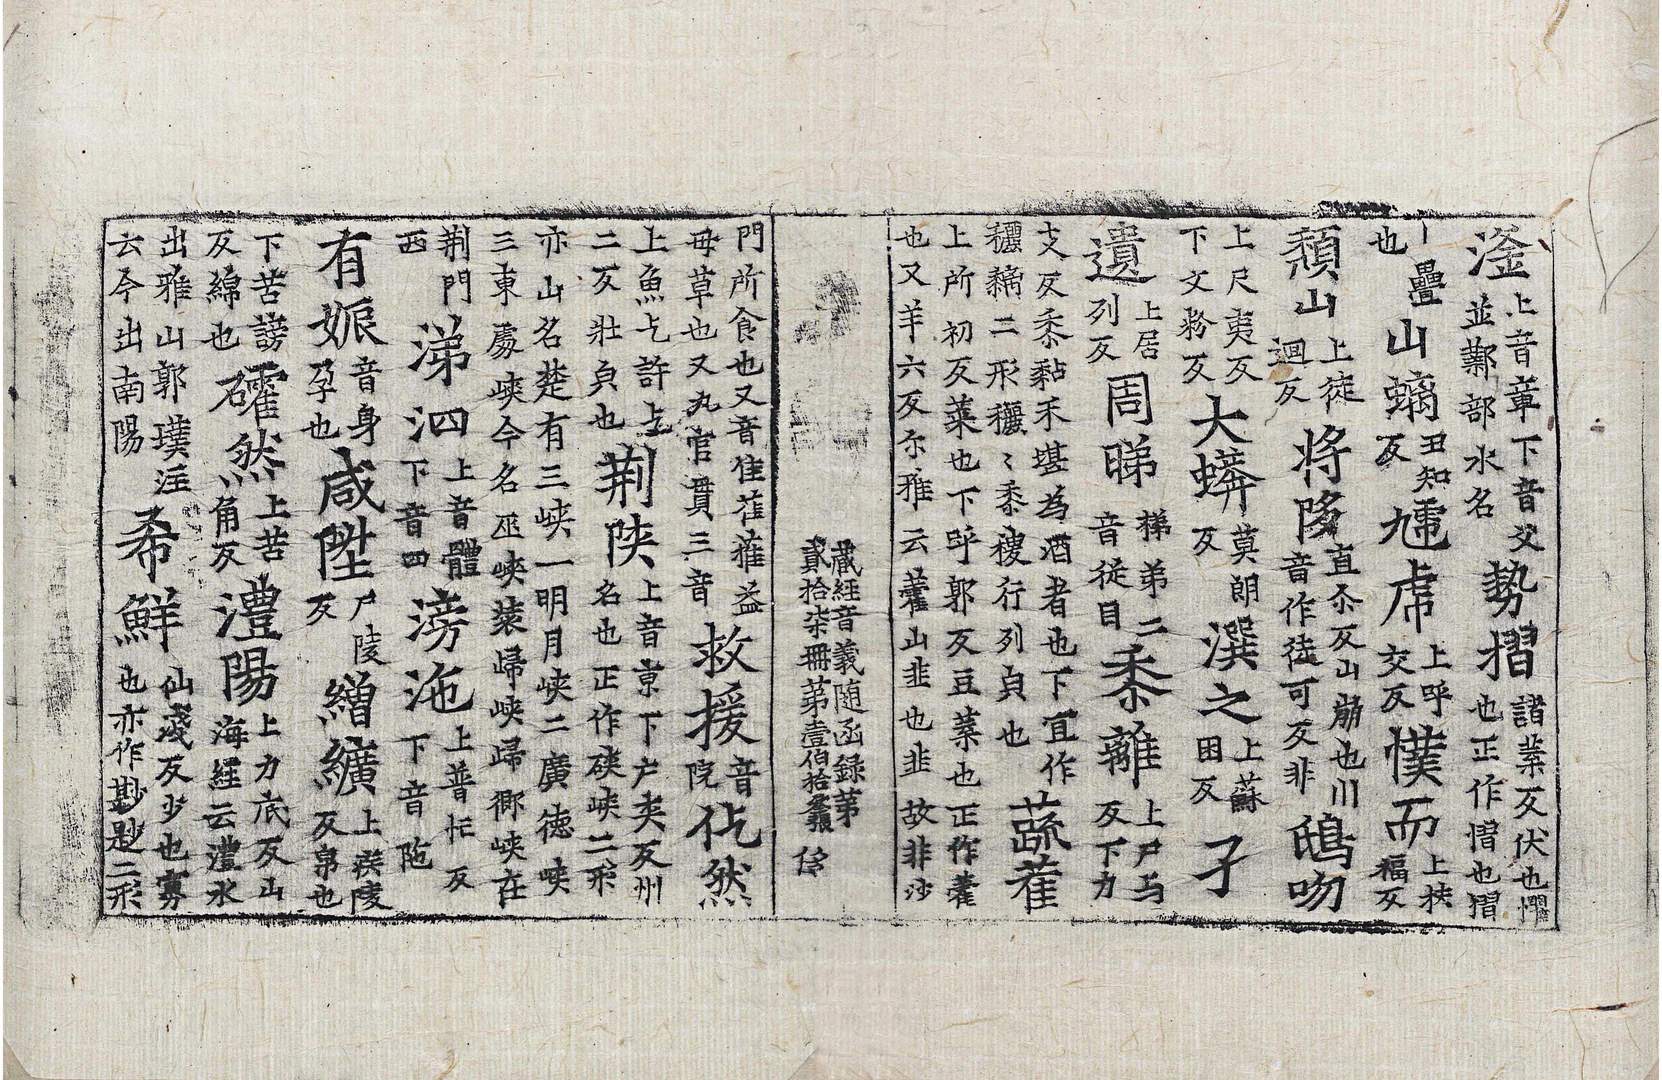 滏上音章下音父並鄴部水名勢摺諸葉反伏也懼也正作慴也㩉
丨疊也山螭丑知反虓虎上呼交反懞而上扶福反
頹山上徒迴反將陊直尒反山崩也川音作徒可反非鴟吻
上尺夷反下文粉反大蟒莫朗反潠之上蘇困反孑
遺上居列反周睇梯弟二音從目黍離上尸与反下力
支反黍黏禾堪為酒者也下宜作蔬藿
穲䅻二形穲〻黍稷行列皃也
上所初反菜也下呼郭反豆葉也正作藿
也又羊六反尒雅云蒮山韭也韭故非沙
藏經音義随函録第
貳拾柒冊第壹伯拾叁張侈
門所食也又音隹萑蓷益
毋草也又丸官貫三音救援音院仡然
上魚乞許乞二反壯皃也荆陜上音京下户夾反州名也正作硤峽二形
亦山名楚有三峽一明月峽二廣德峽
三東𠩄峽今名巫峽䒾歸峽歸鄉峽在
荆門西涕泗上音體下音四滂沲上普忙反下音陁
有娠音身孕也咸陞尸陵反繒纊上疾陵反帛也
下苦謗反綿也礭然上苦角反澧陽上力底反山海經云澧水
出雅山郭璞注云今出南陽希鮮仙淺反少也寡也亦作尠尟二形